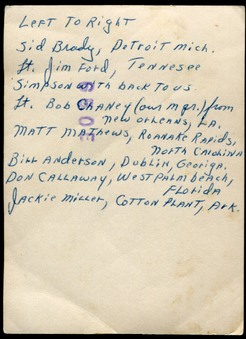 Left To Right
Sid Brady, Detroit Mich.
Lt. Jim Ford, Tennesee
Simpson with back to us.
Lt. Bob Chaney (our mgr.) from
New Orleans, LA.
Matt Mathews, Roanake Rapids,
North Carolina
Bill Anderson, Dublin, Georiga.
Don Callaway, West Palm beach,
Florida
Jackie Miller, Cotton Plant, Ark.